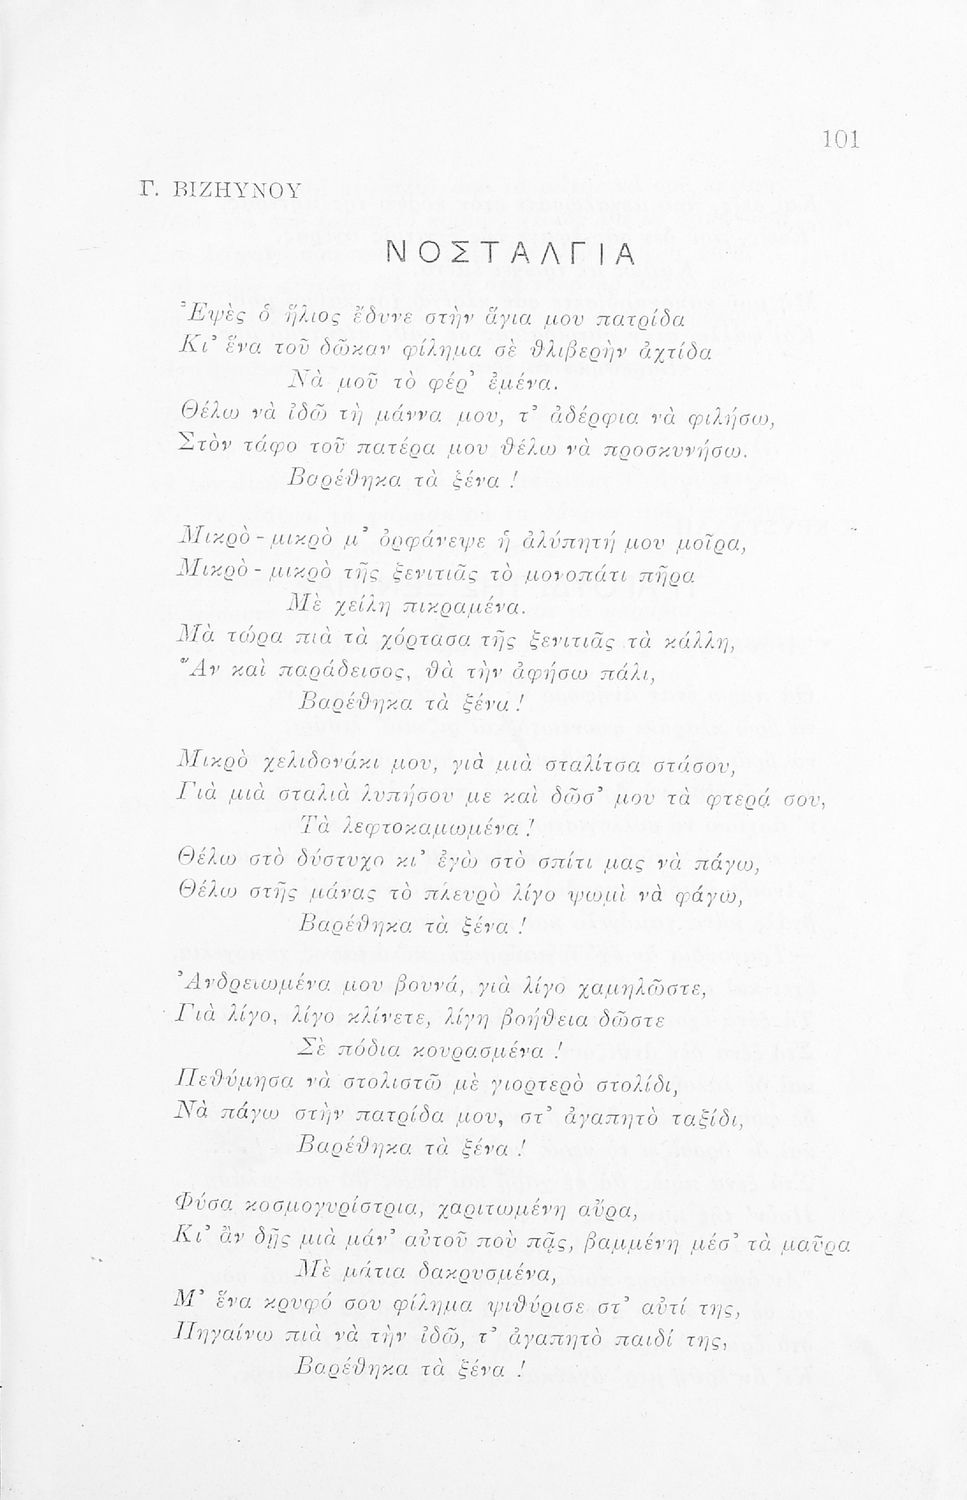 101
Γ. ΒΙΖΗΥΝΟΥ
ΝΟΣΤΑΛΓΙΑ
Ἐψὲς ὁ ἥλιος ἔδυνε στὴν ἅγια μου πατρίδα
Κι' ἕνα τοῦ δῶκαν φίλημα σὲ θλιβερὴν ἀχτίδα
Νὰ μοῦ τὸ φέρ' ἐμένα.
Θέλω νὰ ἰδῶ τὴ μάννα μου, τ' ἀδέρφια νὰ φιλήσω,
Στὸν τάφο τοῦ πατέρα μου θέλω νὰ προσκυνήσω.
Βαρέθηκα τὰ ξένα !
Μικρὸ - μικρὸ μ' ὀρφάνεψε ἡ ἀλύπητή μου μοῖρα,
Μικρὸ - μικρὸ τῆς ξενιτιᾶς τὸ μονοπάτι πῆρα
Μὲ χείλη πικραμένα.
Μὰ τώρα πιὰ τὰ χόρτασα τῆς ξενιτιᾶς τὰ κάλλη,
Ἂν καὶ παράδεισος, θὰ τὴν ἀφήσω πάλι,
Βαρέθηκα τὰ ξένα !
Μικρὸ χελιδονάκι μου, γιὰ μιὰ σταλίτσα στάσου,
Γιὰ μιὰ σταλιὰ λυπήσου με καὶ δῶσ' μου τὰ φτερά σου,
Τὰ λεφτοκαμωμένα !
Θέλω στὸ δύστυχο κι' ἐγὼ στὸ σπίτι μας νὰ πάγω,
Θέλω στῆς μάνας τὸ πλευρὸ λίγο ψωμὶ νὰ φάγω,
Βαρέθηκα τὰ ξένα !
Ἀνδρειωμένα μου βουνά, γιὰ λίγο χαμηλῶστε,
Γιὰ λίγο, λίγο κλίνετε, λίγη βοήθεια δῶστε
Σὲ πόδια κουρασμένα !
Πεθύμησα νὰ στολιστῶ μὲ γιορτερὸ στολίδι,
Νὰ πάγω στὴν πατρίδα μου, στ' ἀγαπητὸ ταξίδι,
Βαρέθηκα τὰ ξένα !
Φύσα κοσμογυρίστρια, χαριτωμένη αὔρα,
Κι' ἂν δῇς μιὰ μάν' αὐτοῦ ποὺ πᾷς, βαμμένη μέσ' τὰ μαῦρα
Μὲ μάτια δακρυσμένα,
Μ' ἕνα κρυφό σου φίλημα ψιθύρισε στ' αὐτί της,
Πηγαίνω πιὰ νὰ τὴν ἰδῶ, τ' ἀγαπητὸ παιδί της,
Βαρέθηκα τὰ ξένα !